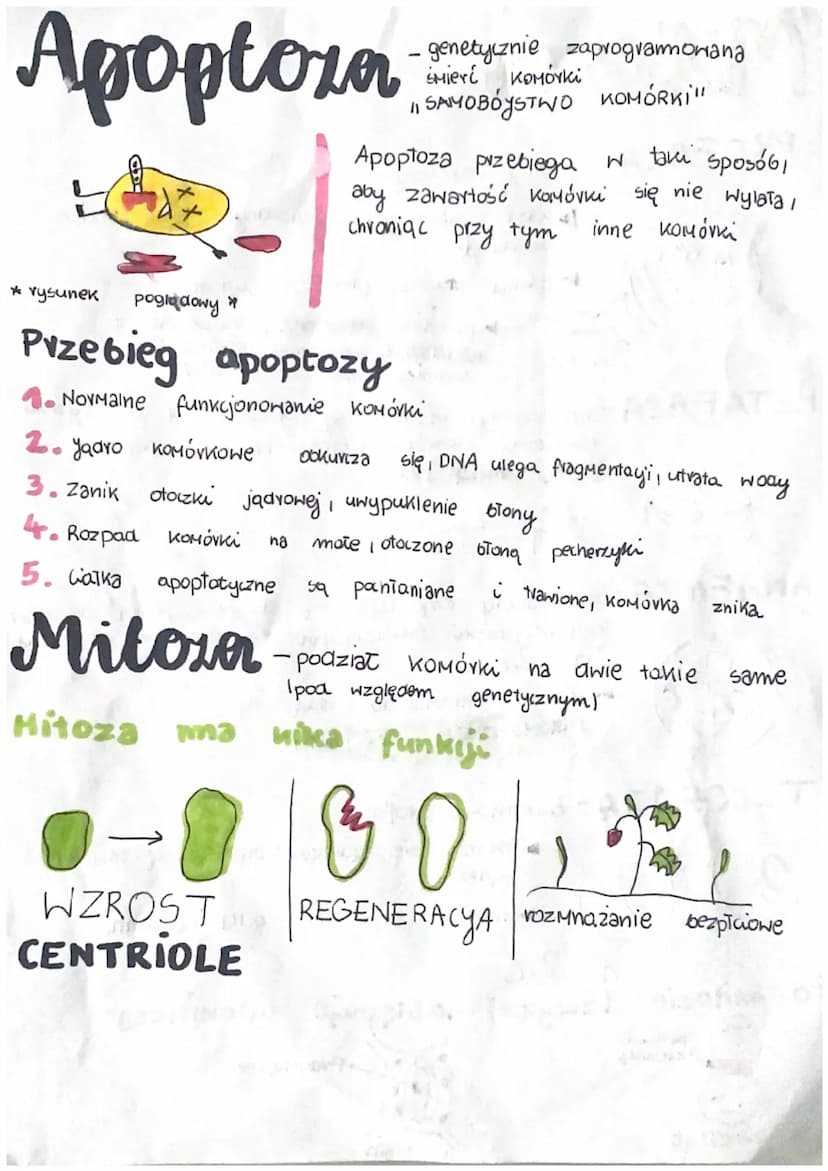 Apoptoza
- genetycznie zaprogramowana
śmierć komórki
"SAMOBÓJSTWO KOMÓRKI"
Apoptoza przebiega w taki sposób,
aby zawartość komórki się nie wylała,
chroniąc przy tym inne komórki
* rysunek poglądowy *
Przebieg apoptozy
1. Normalne funkcjonowanie komórki
2. Jądro komórkowe obkurcza się, DNA ulega fragmentacji, utrata wody
3. Zanik otoczki jądrowej, uwypuklenie błony
4. Rozpad komórki na małe, otoczone błoną pęcherzyki
5. Ciałka apoptotyczne są pochłaniane i trawione, komórka znika
Mitoza
- podział komórki na dwie takie same
(pod względem genetycznym)
Mitoza ma kilka funkcji
WZROST
REGENERACJA
rozmnażanie bezpłciowe
CENTRIOLE